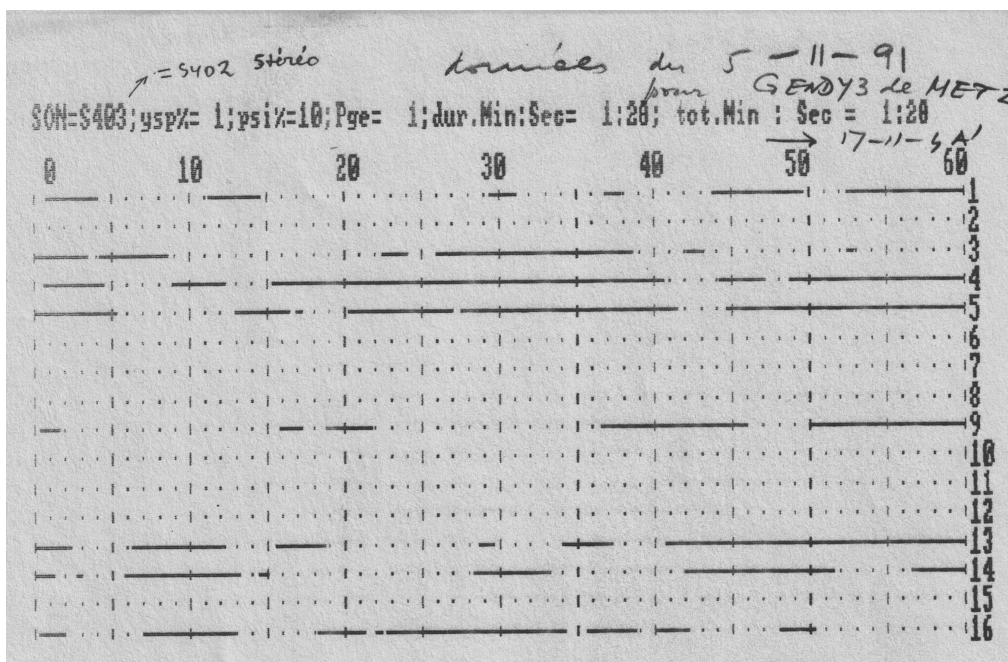 = S402 Stéréo
données du 5-11-91
pour GENDY3 de METZ
SON=S403;ysp%= 1;psi%=10;Pge= 1;dur.Min:Sec= 1:20; tot.Min : Sec = 1:20
→ 17-11-
0 10 20 30 40 50 60
1
2
3
4
5
6
7
8
9
10
11
12
13
14
15
16